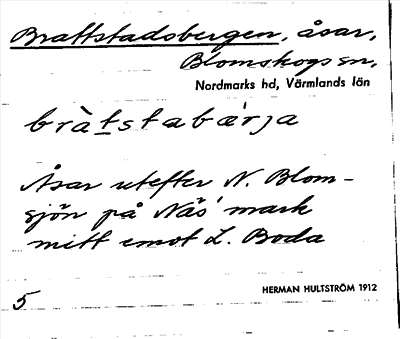 Brattstadsbergen, åsar,
Blomskogs sn,
Nordmarks hd, Värmlands län
bràtstabæ̀rja
Åsar utefter N. Blom-
sjön på Näs' mark
mitt emot L. Boda
HERMAN HULTSTRÖM 1912
5